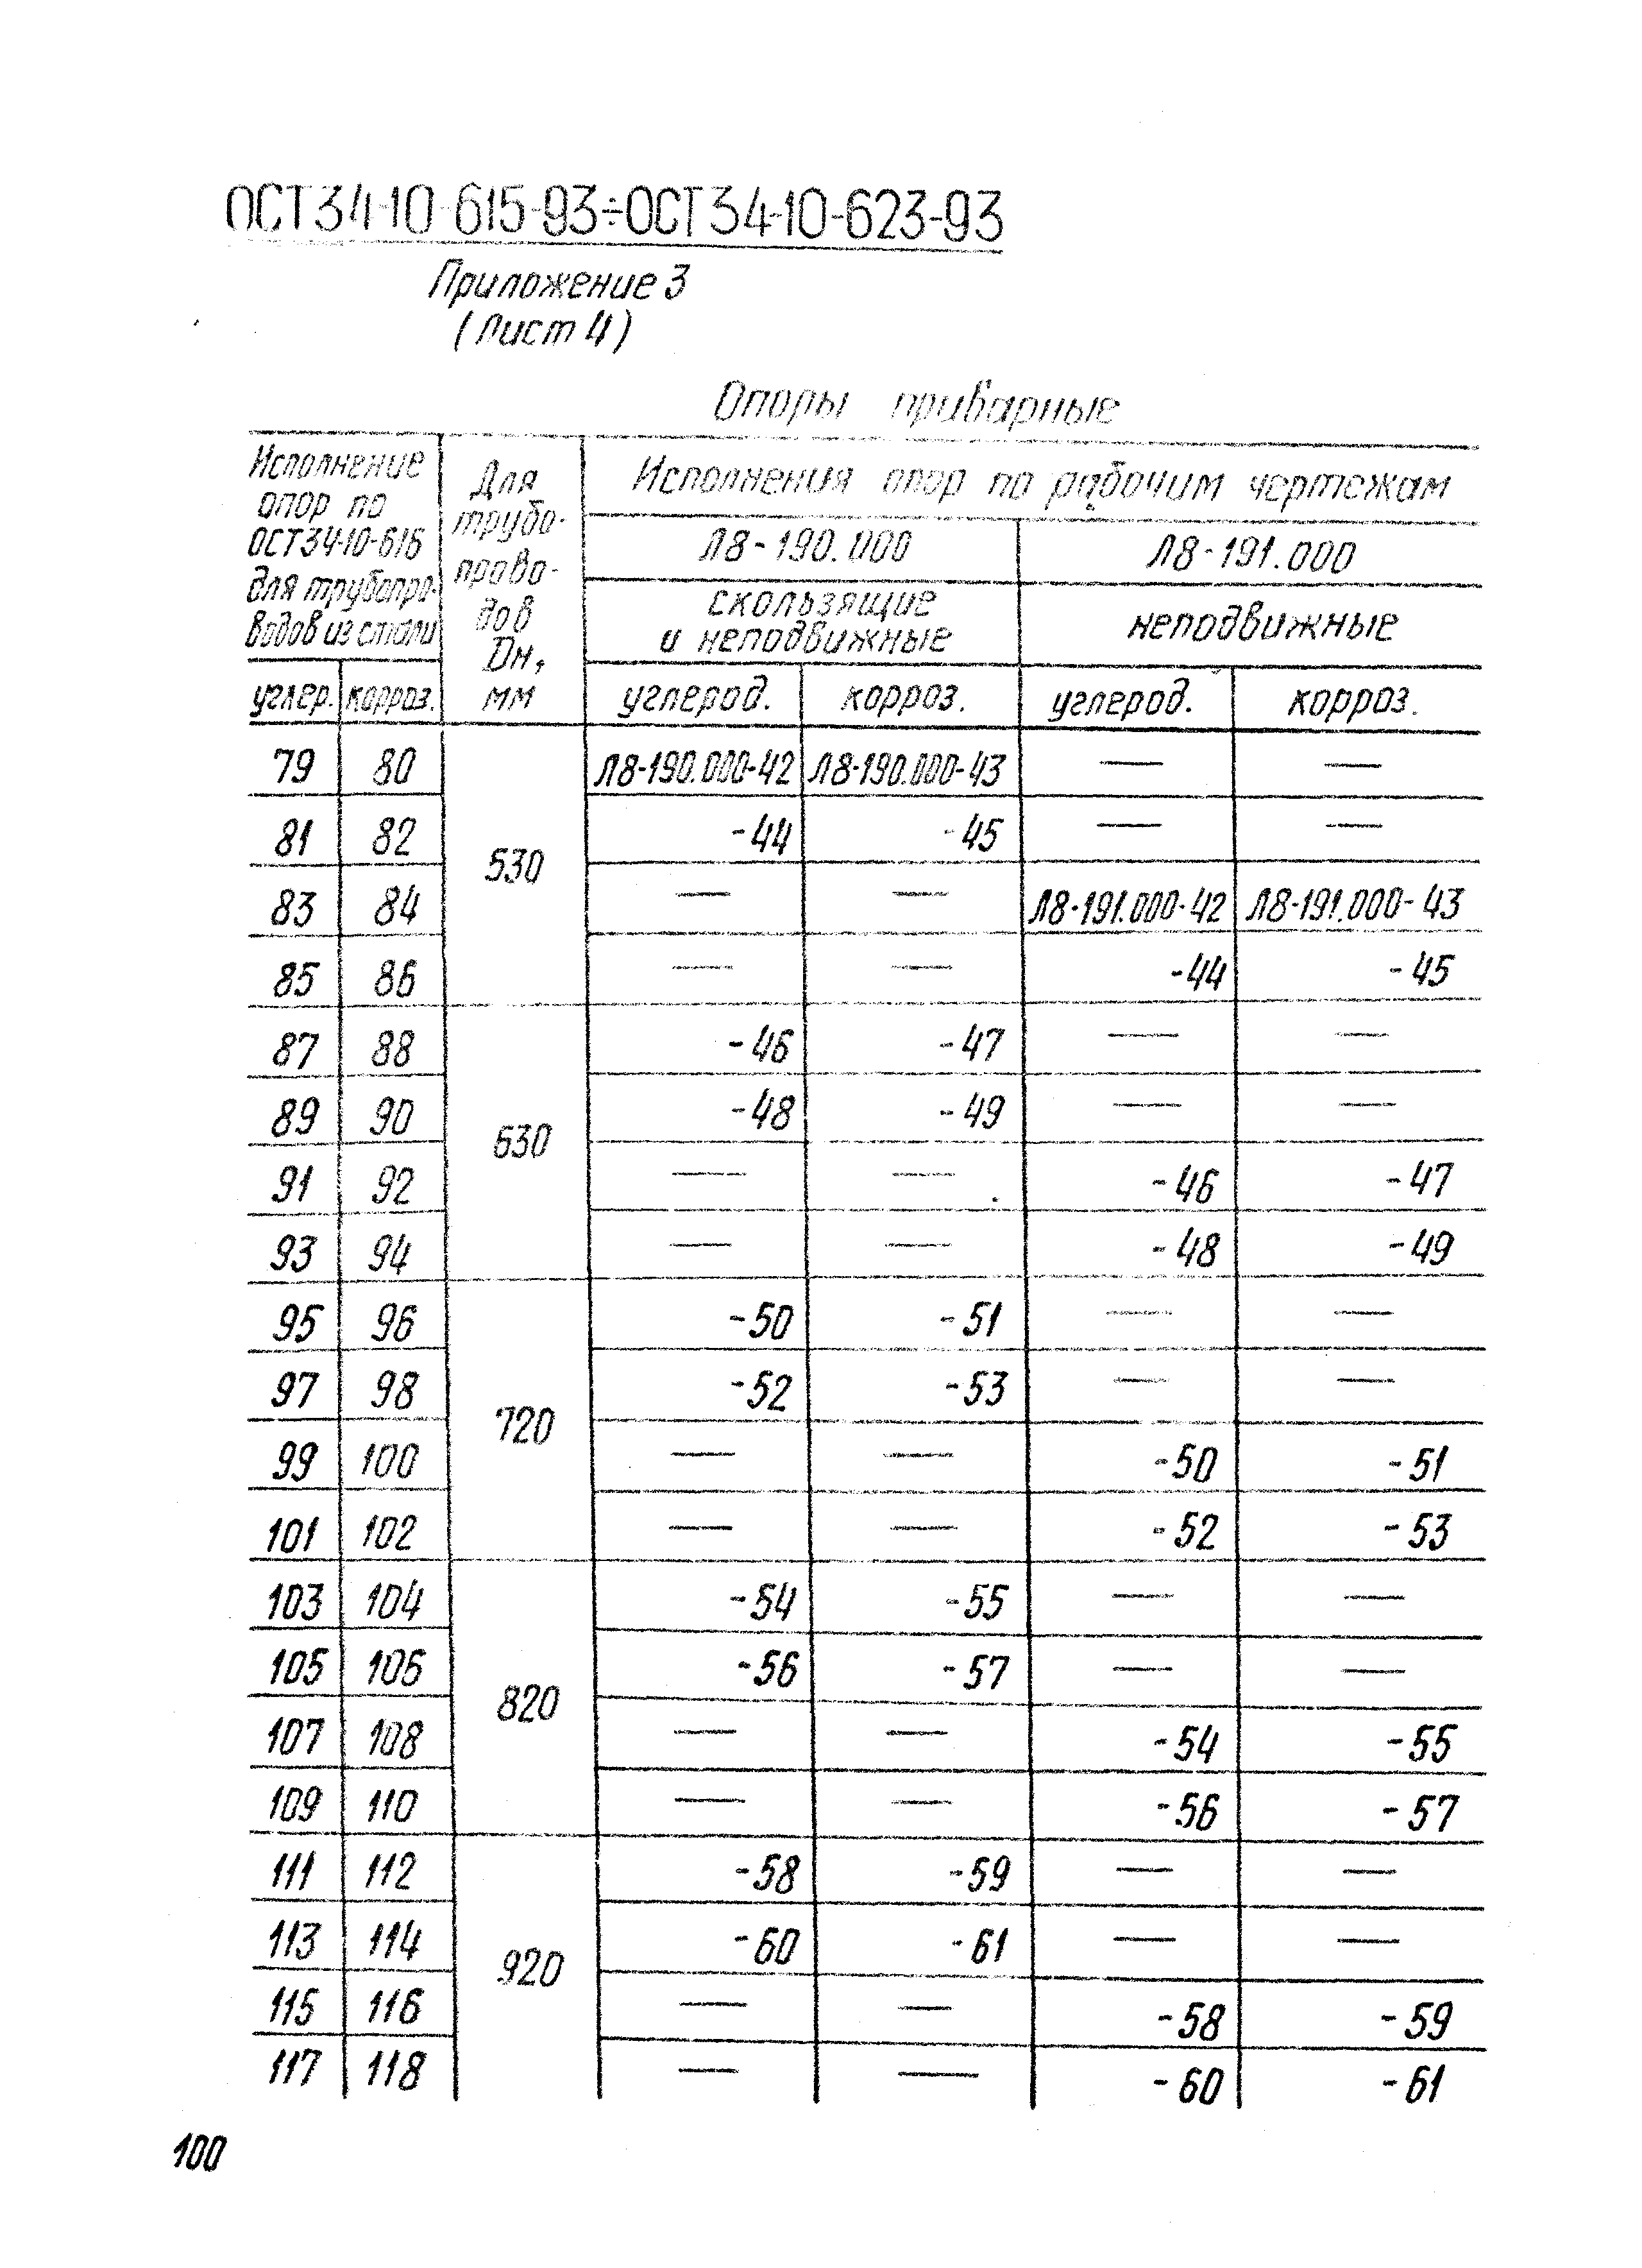 ОСТ 34-10-615-93÷ОСТ 34-10-623-93
Приложение 3
(Лист 4)
Опоры приварные
Исполнение опор по ОСТ 34-10-616 для трубопро- водов из стали
Для трубо- прово- дов Dн, мм
Исполнения опор по рабочим чертежам
Л8-190.000 Л8-191.000
скользящие и неподвижные
неподвижные
углер. корроз. углерод. корроз. углерод. корроз.
79 80 530 Л8-190.000-42 Л8-190.000-43 — —
81 82 -44 -45 — —
83 84 — — Л8-191.000-42 Л8-191.000-43
85 86 — — -44 -45
87 88 630 -46 -47 — —
89 90 -48 -49 — —
91 92 — — -46 -47
93 94 — — -48 -49
95 96 720 -50 -51 — —
97 98 -52 -53 — —
99 100 — — -50 -51
101 102 — — -52 -53
103 104 820 -54 -55 — —
105 106 -56 -57 — —
107 108 — — -54 -55
109 110 — — -56 -57
111 112 920 -58 -59 — —
113 114 -60 -61 — —
115 116 — — -58 -59
117 118 — — -60 -61
100